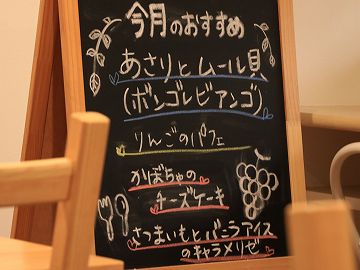 今月のおすすめ
あさりとムール貝
(ボンゴレビアンゴ)
りんごのパフェ
かぼちゃの
チーズケーキ
さつまいもとバニラアイス
のキャラメリゼ